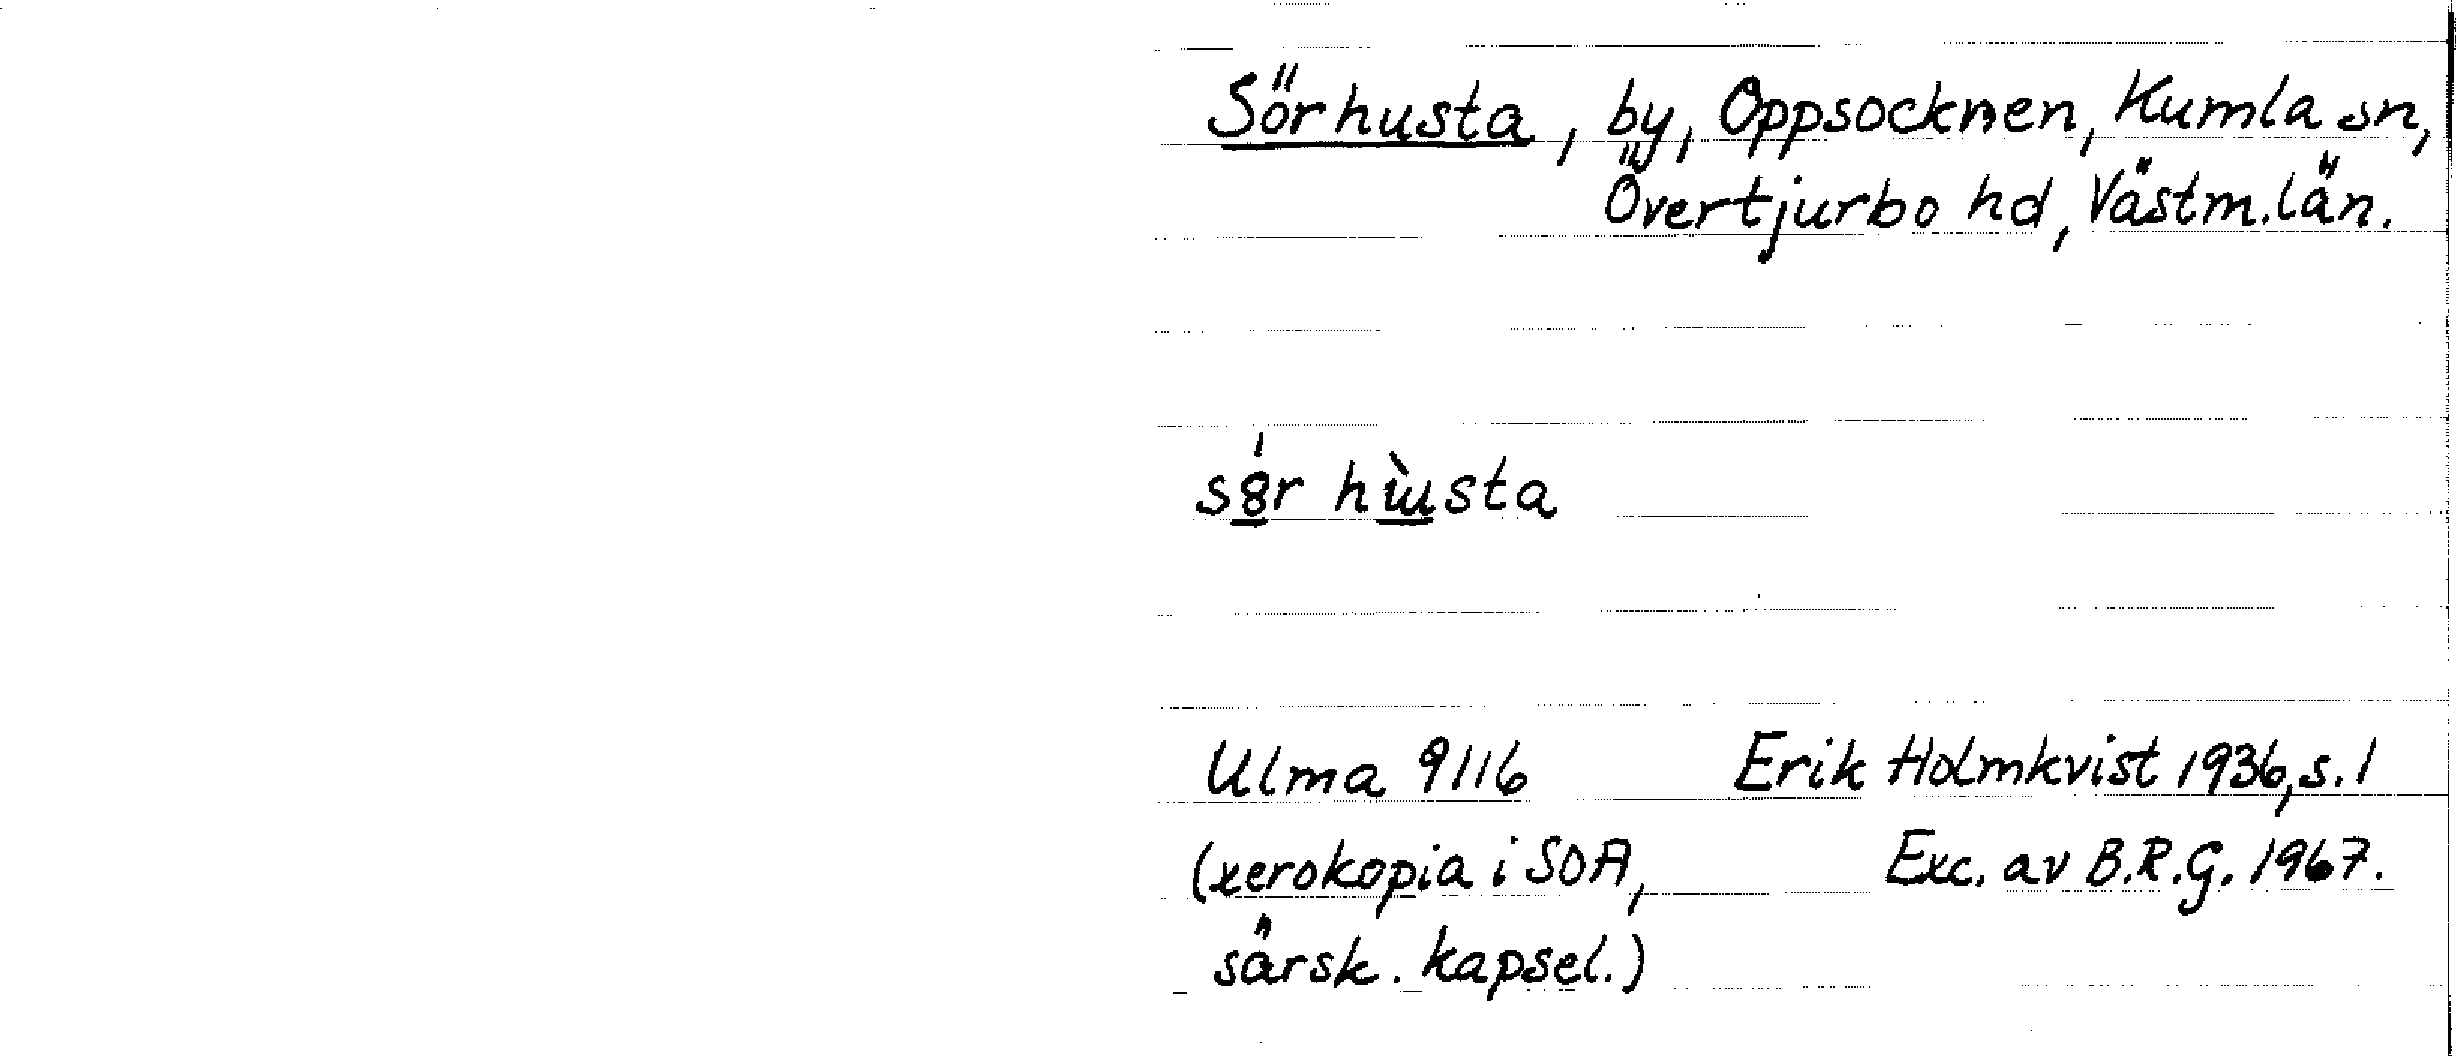 Sörhusta, by, Oppsocknen, Kumla sn,
Övertjurbo hd, Västm.län.
Ulma 9116 Erik Holmkvist 1936, s. 1
(xerokopia i SOA, Exc. av B.R.G. 1967.
särsk. kapsel.)